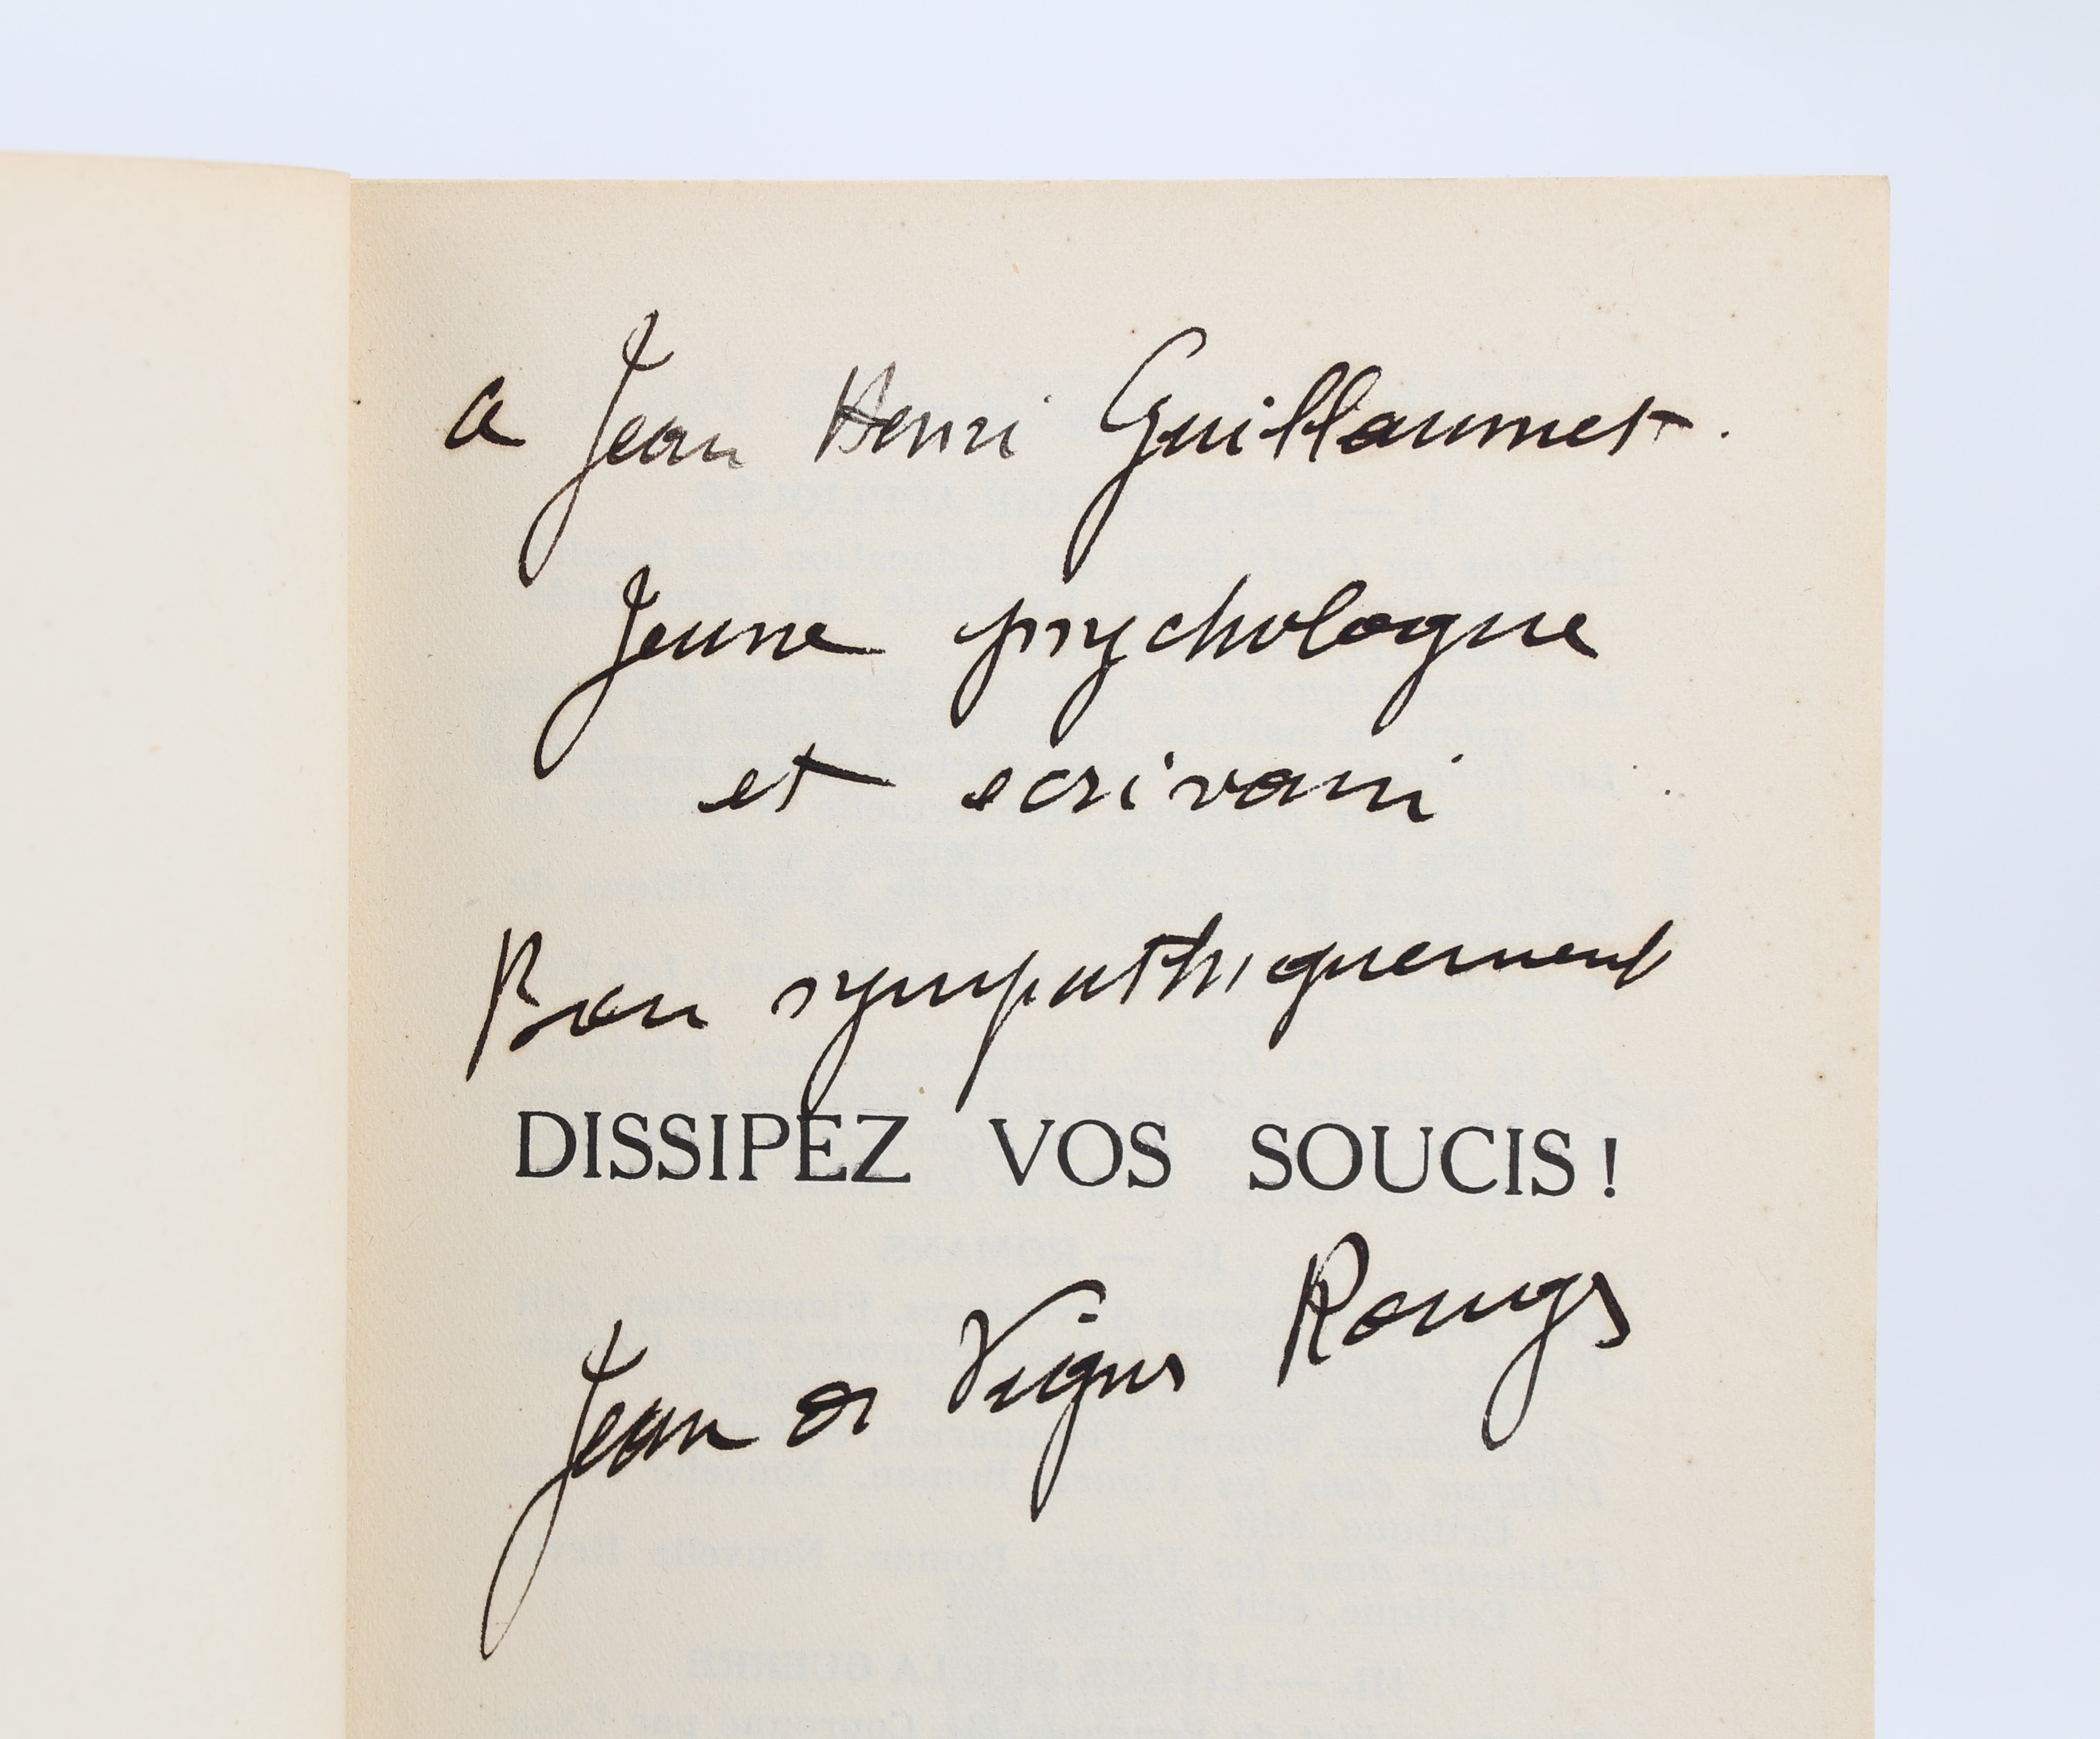 a Jean Henri Guillaumet.
Jeune psychologue
et ecrivain
Bon sympathiquement
DISSIPEZ VOS SOUCIS !
Jean des Vignes Rouges